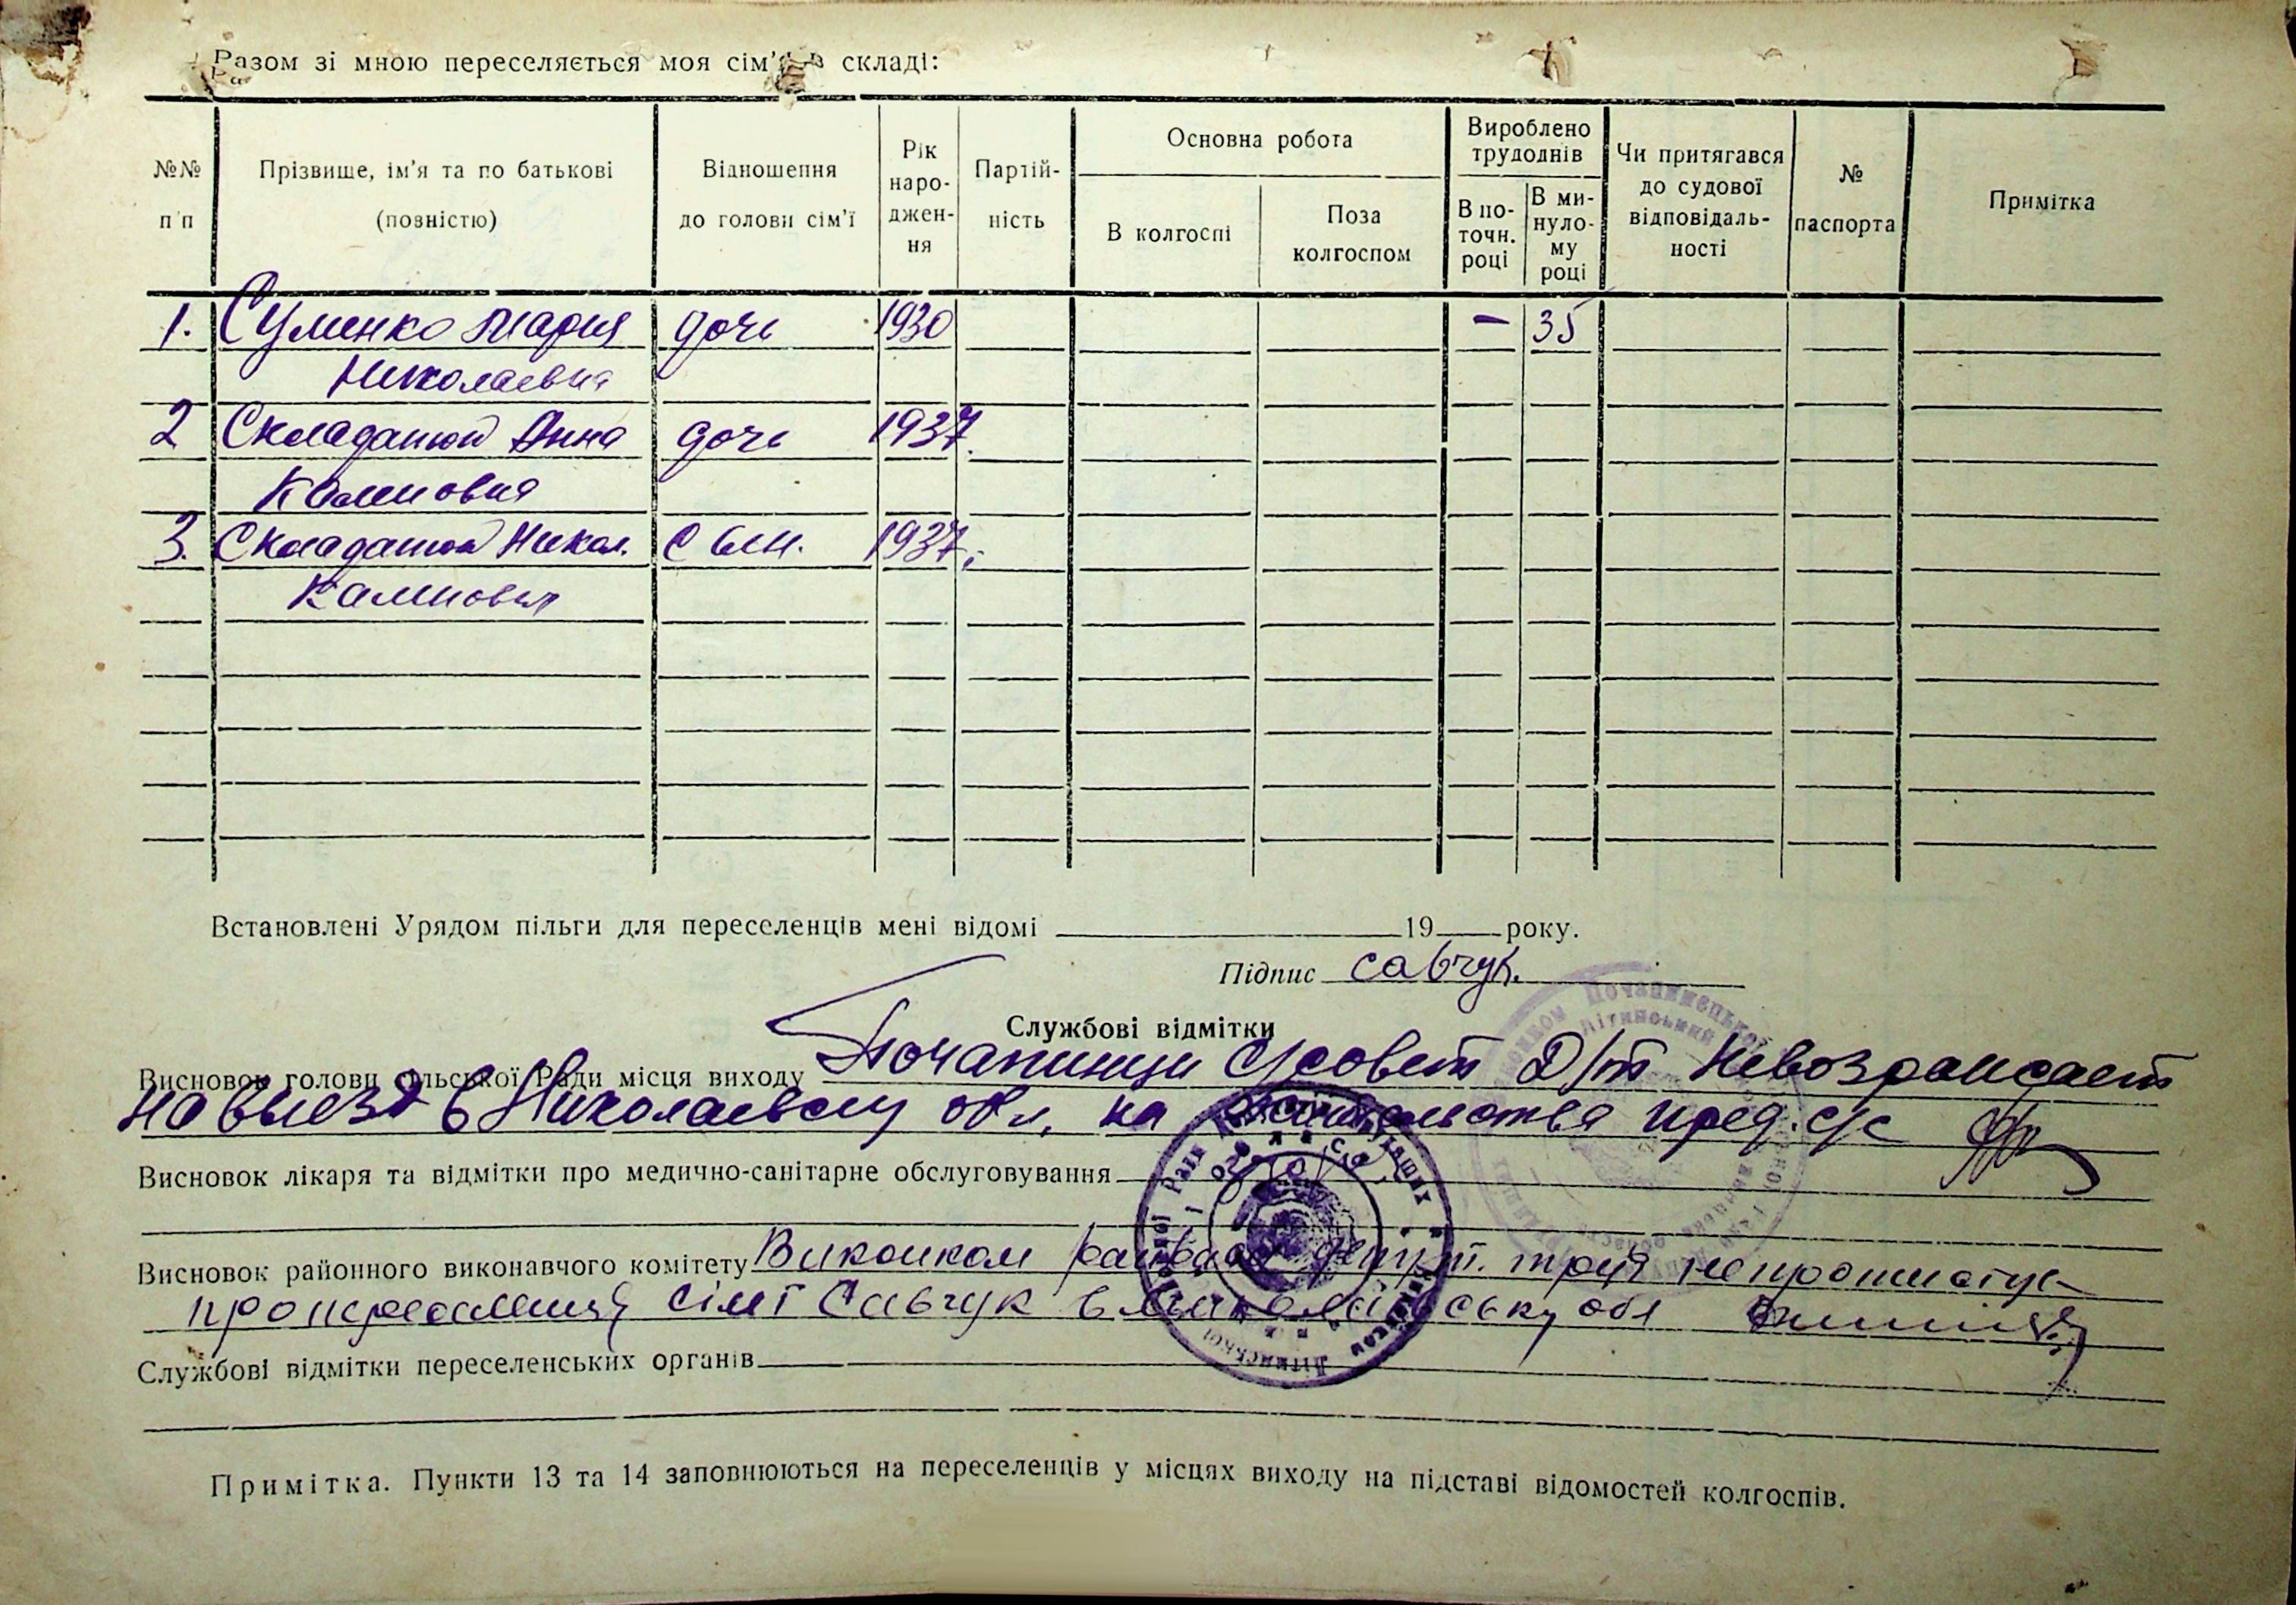 Разом зі мною переселяється моя сім'я в складі:
№№ п/п
Прізвище, ім'я та по батькові (позністю)
Відношення до голови сім'ї
Рік народжен-ня
Партій-ність
Основна робота
В колгоспі
Поза колгоспом
Вироблено трудоднів
В по-точн. році
В ми-нуло-му році
Чи притягався до судової відповідаль-ності
№ паспорта
Примітка
1. Суменко Мария дочь 1930 — 35
Николаевна
2 Складанюк Анна дочь 1937.
Калиновна
3. Складанюк Никол. Сын. 1937.
Калинович
Встановлені Урядом пільги для переселенців мені відомі 19 року.
Підпис Савчук.
Службові відмітки
Висновок голови сільської Ради місця виходу Почапинци С/совет Д/т Невозражает
на выезд в Николаевску обл. на жительства пред. с/с
Висновок лікаря та відмітки про медично-санітарне обслуговування
Висновок районного виконавчого комітету Виконком райради депут. труд. не протистує
про переселення сім'ї Савчук в Миколаївську обл
Службові відмітки переселенських органів
Примітка. Пункти 13 та 14 заповнюються на переселенців у місцях виходу на підставі відомостей колгоспів.